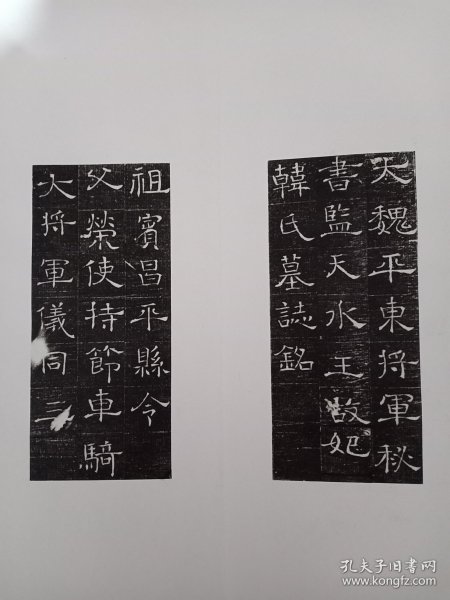 大魏平東将軍秘
書監天水王故妃
韓氏墓誌銘
祖賓昌平縣令
父榮使持節車騎
大将軍儀同三
孔夫子旧书网
www.kongfz.com